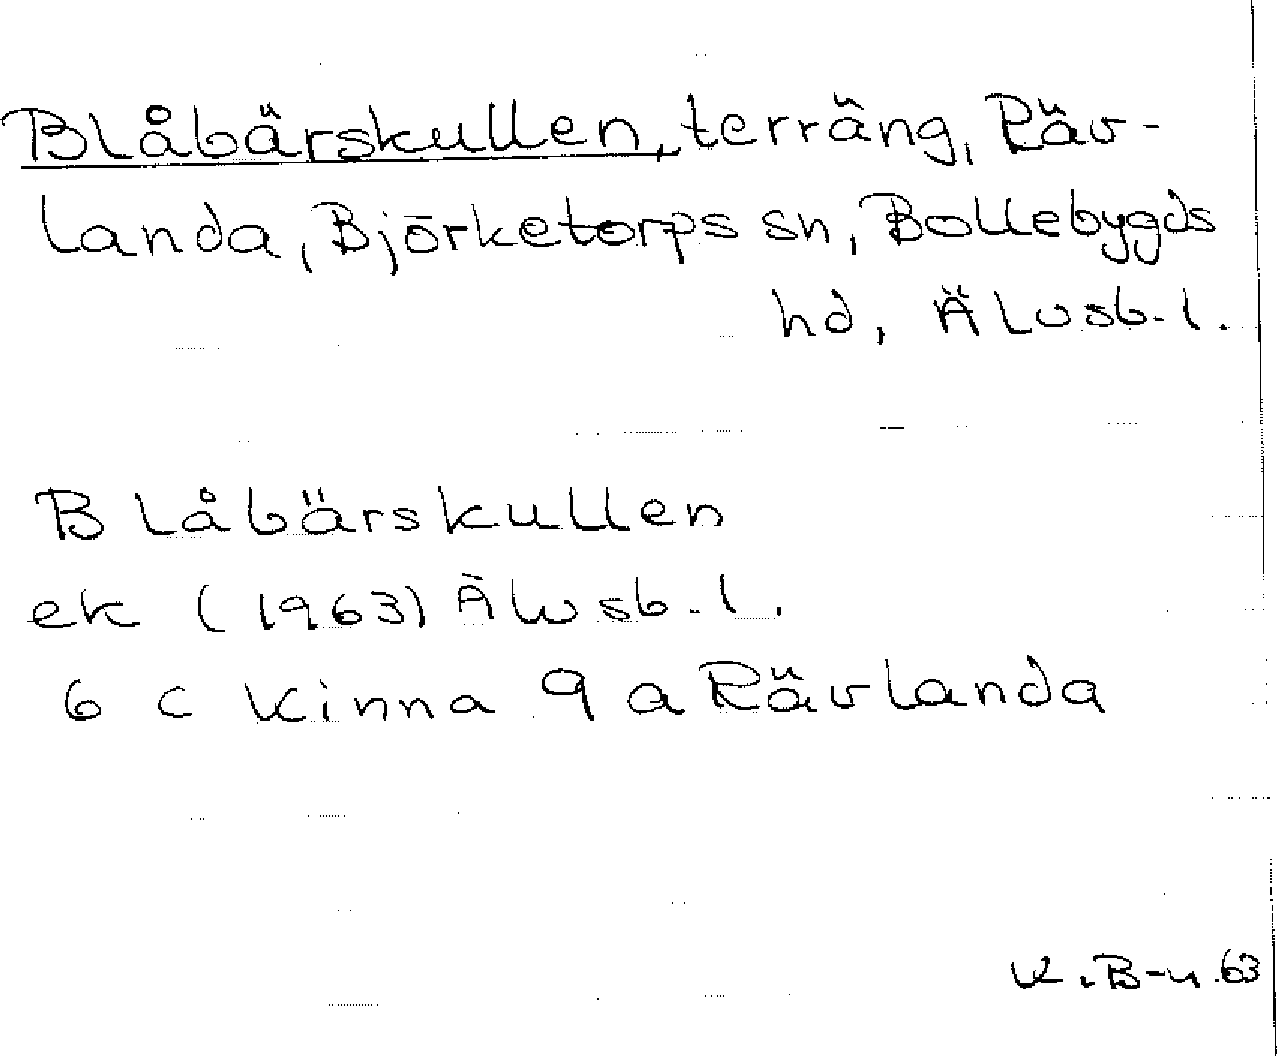 Blåbärskullen, terräng, Räv-
landa, Björketorps sn, Bollebygds
hd, Älvsb. l.
Blåbärskullen
ek (1963) Älvsb. l.
6 c Kinna 9 a Rävlanda
K. B-n. 63